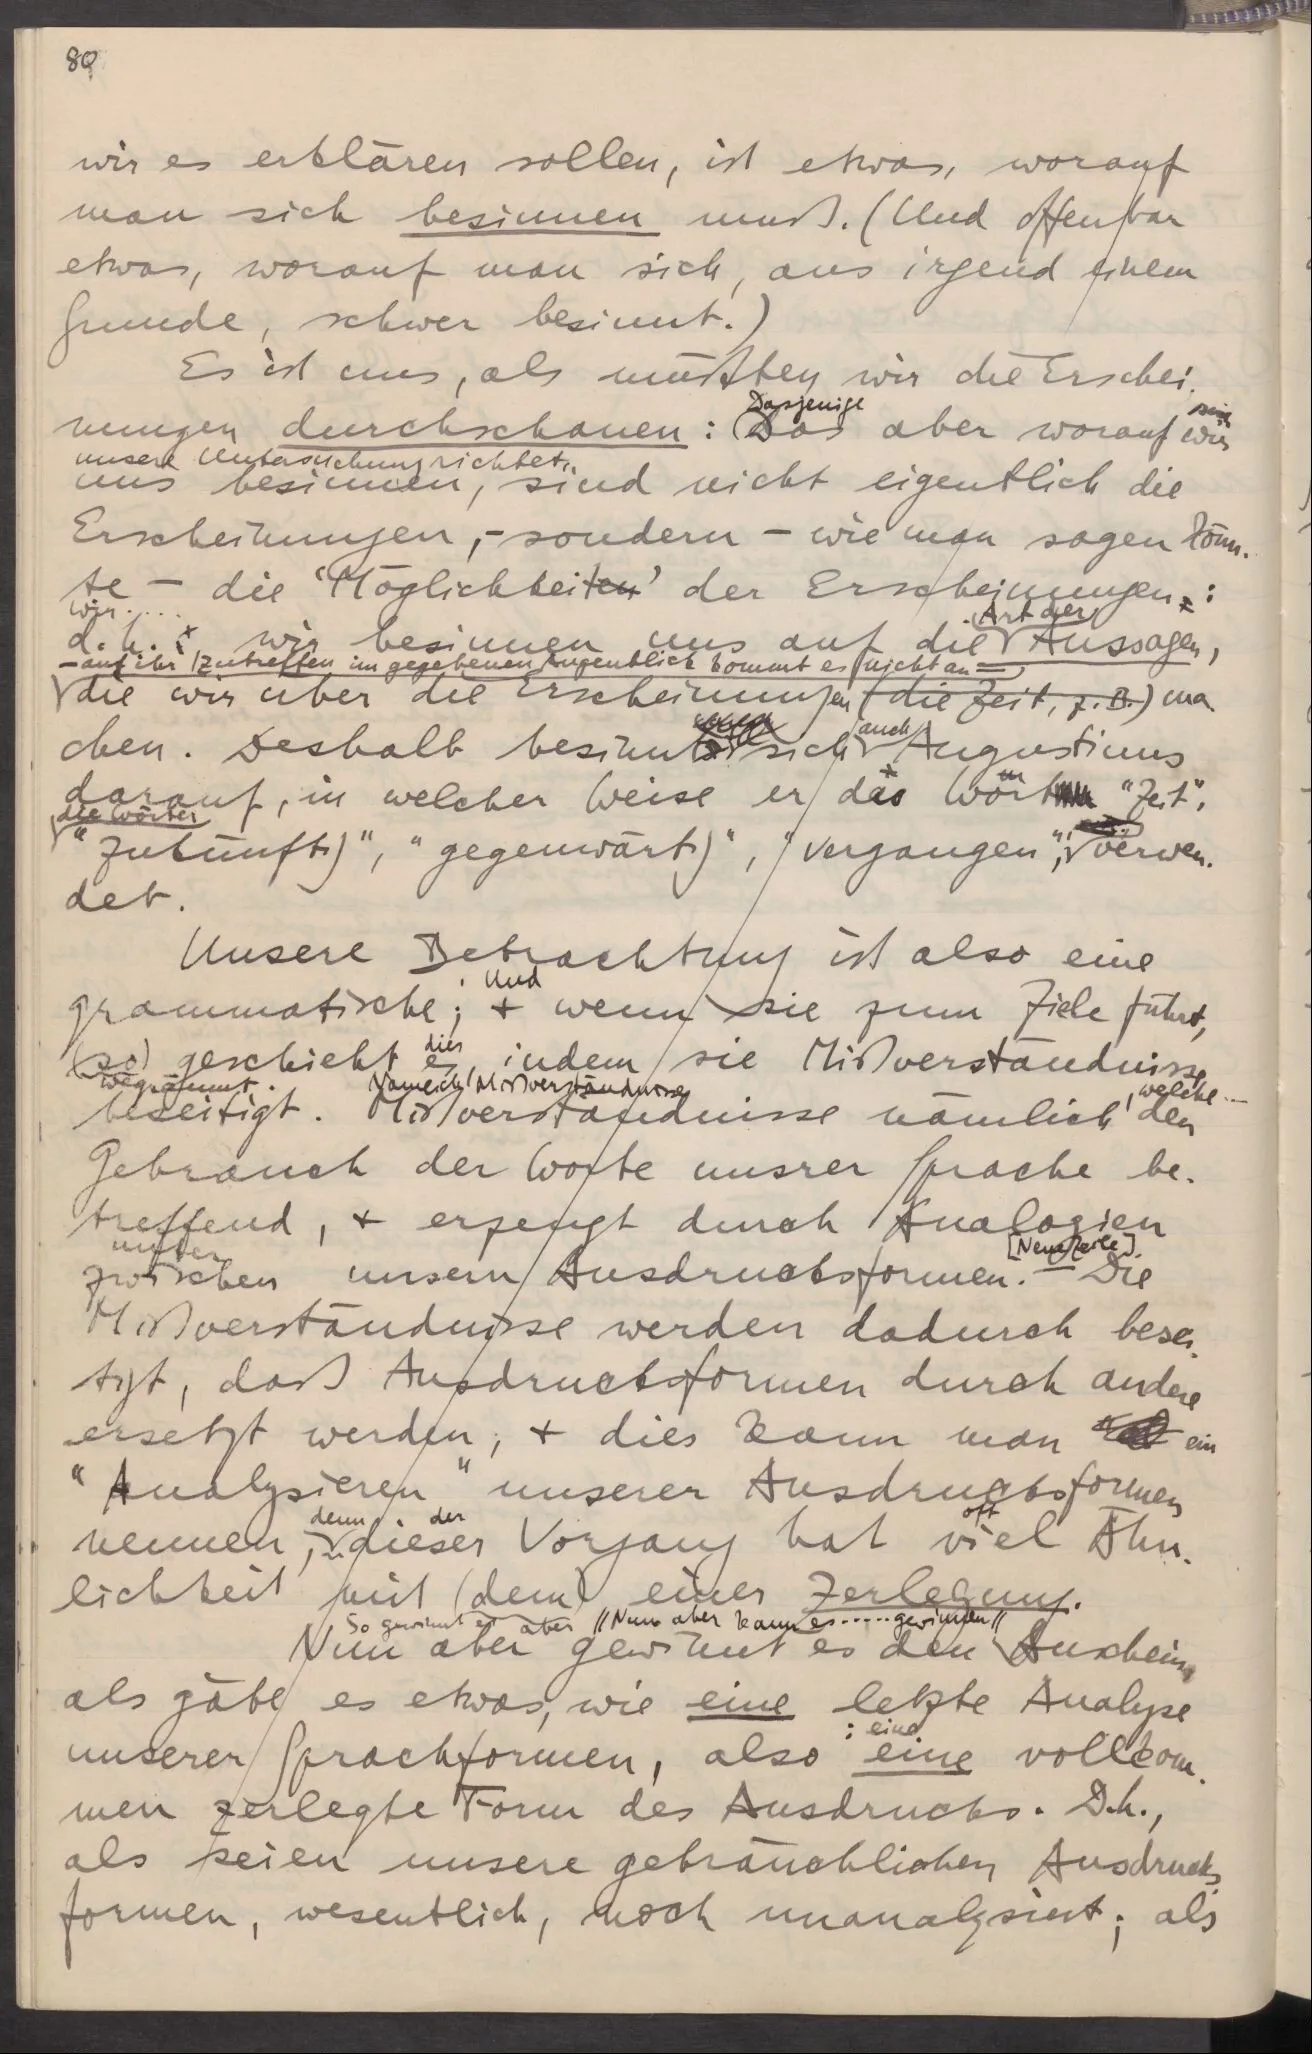 80
wir es erklären sollen, ist etwas, worauf
man sich besinnen muß. (Und offenbar
etwas, worauf man sich, aus irgend einem
Grunde, schwer besinnt.)
Es ist uns, als müßten wir die Erschei-
Dasjenige sich
nungen durchschauen: Das aber worauf wir
unsere Untersuchung richtet,
uns besinnen, sind nicht eigentlich die
Erscheinungen, - sondern - wie man sagen könn-
te - die 'Möglichkeiten' der Erscheinungen.:
wir..... Art der
d.h.: wir besinnen uns auf die Aussagen,
- auf ihr Zutreffen im gegebenen Augenblick kommt es nicht an -
die wir über die Erscheinungen (die Zeit, z.B.) ma-
auch
chen. Deshalb besinnt sich Augustinus
darauf, in welcher Weise er das Wort "Zeit",
die Wörter
"zukünft(ig)", "gegenwärt(ig)", "vergangen", verwen-
det.
Unsere Betrachtung ist also eine
Und
grammatische; + wenn sie zum Ziele führt,
dies
(so) geschieht es, indem sie Mißverständnisse
wegräumt. Nämlich Mißverständnisse , welche ...
beseitigt. Mißverständnisse nämlich den
Gebrauch der Worte unsrer Sprache be-
treffend, + erzeugt durch Analogien
unter [Neue Zeile]
zwischen unsern Ausdrucksformen. - Die
Mißverständnisse werden dadurch besei-
tigt, daß Ausdrucksformen durch andere
ersetzt werden; + dies kann man ein
"Analysieren" unserer Ausdrucksformen
denn der oft
nennen, dieser Vorgang hat viel Ähn-
lichkeit mit (dem) einer Zerlegung.
So gewinnt es aber //Nun aber kann es ..... gewinnen//
Nun aber gewinnt es den Anschein,
als gäbe es etwas, wie eine letzte Analyse
: eine
unserer Sprachformen, also eine vollkom-
men zerlegte Form des Ausdrucks. D.h.,
als seien unsere gebräuchlichen Ausdrucks-
formen, wesentlich, noch unanalysiert; als